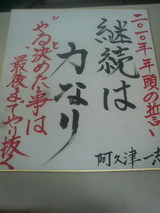 二〇一〇年年頭の誓い
継続は
力なり
やると決めた事は
最後までやり抜く
阿久津一志